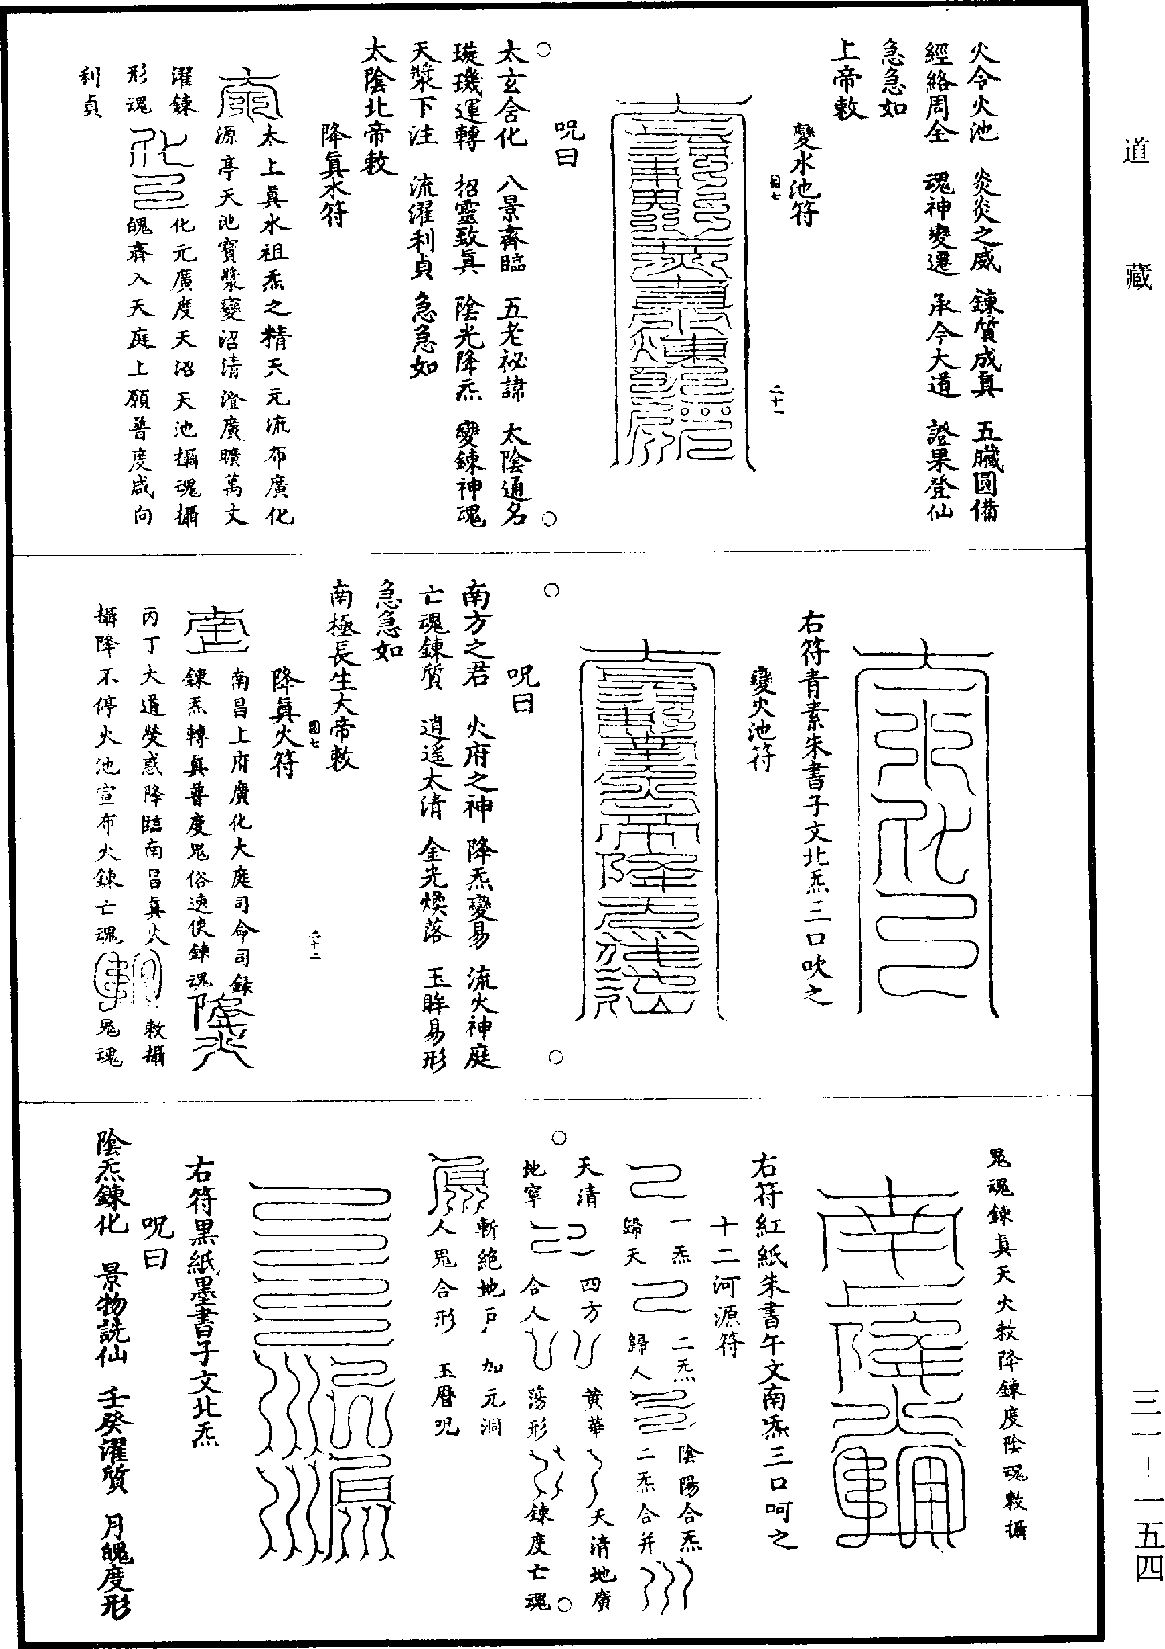 道藏
三一—一五四
火令火池　炎炎之威　鍊質成真　五臟圓備
經絡周全　魂神變遷　承令大道　證果登仙
急急如
上帝敕
變水池符
咒曰
太玄含化　八景齊臨　五老祕諱　太陰通名
璇璣運轉　招靈致真　陰光降炁　變鍊神魂
天漿下注　流濯利貞　急急如
太陰北帝敕
降真水符
太上真水祖炁之精天元流布廣化
源亭天池寶漿變沼清澄廣曠萬丈
濯鍊　化元廣度天沼天池攝魂攝
形魂　魄齊入天庭上願普度咸向
利貞
右符青素朱書子文北炁三口吹之
變火池符
咒曰
南方之君　火府之神　降炁變易　流火神庭
亡魂鍊質　逍遥太清　金光煥落　玉眸易形
急急如
南極長生大帝敕
降真火符
南昌上府廣化大庭司命司錄
鍊炁轉真普度鬼俗速使鍊魂
丙丁大道熒惑降臨南昌真火　敕攝
攝降不停火池宣布火鍊亡魂　鬼魂
鬼魂鍊真天火敕降鍊度陰魂敕攝
右符紅紙朱書午文南炁三口呵之
十二河源符
一炁　二炁　陰陽合炁
歸天　歸人　二炁合并
天清　四方　黃華　天清地廣
地寧　合人　蕩形　鍊度亡魂
斬絕地戶　加元洞
人鬼合形　玉曆咒
右符黑紙墨書子文北炁
咒曰
陰炁鍊化　景物詵仙　壬癸濯質　月魄度形